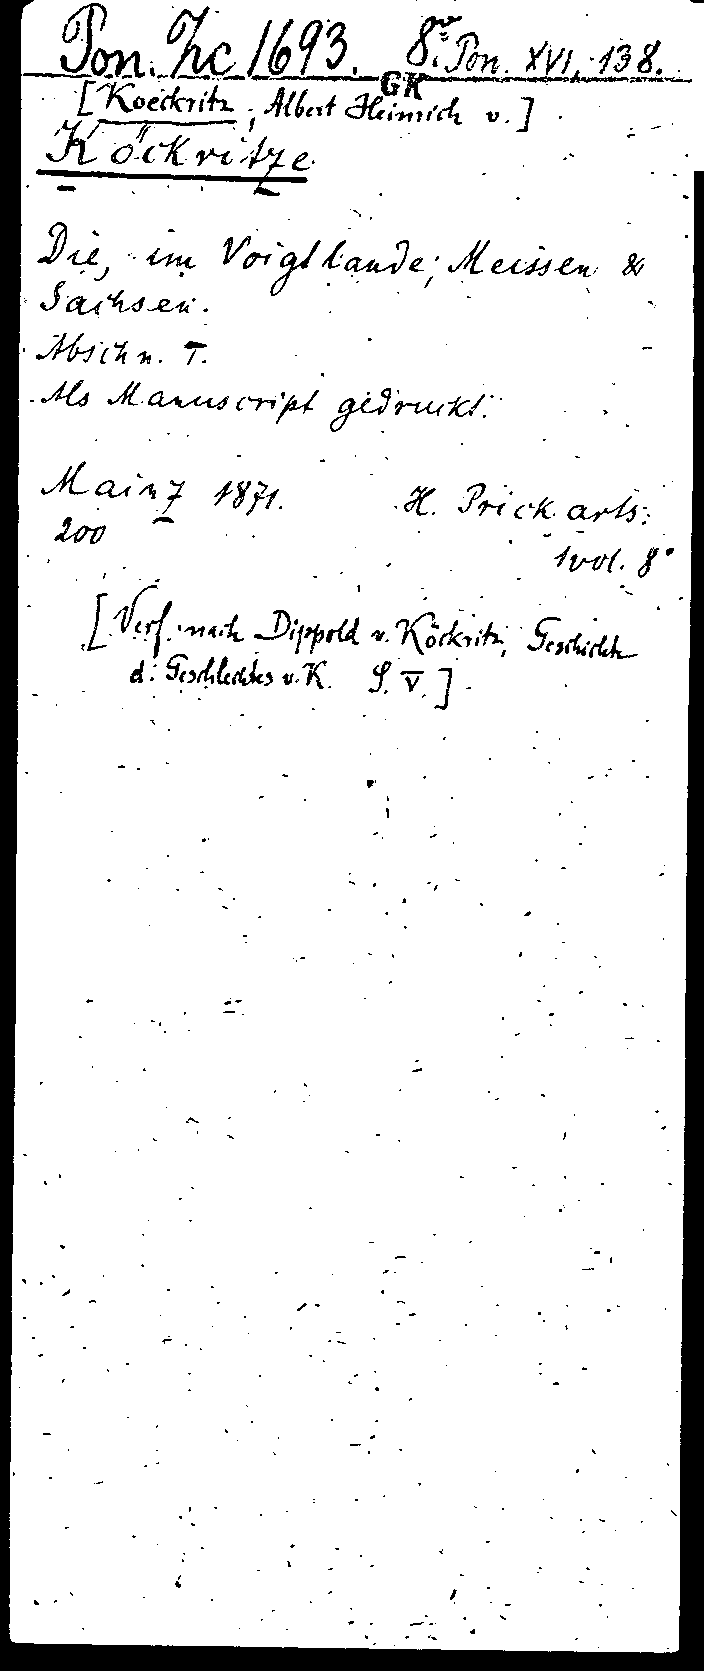 Pon. Zc 1693. 8vo Pon. XVI, 138.
GK
[Koeckritz, Albert Heinrich v.]
Köckritze
Die, im Voigtlande, Meissen &
Sachsen.
Abschn. I.
Als Manuscript gedruckt.
Mainz 1871. H. Prickarts.
200
1 vol. 8°
[Verf. nach Dippold v. Köckritz, Geschichte
d. Geschlechtes v. K. S. V.]